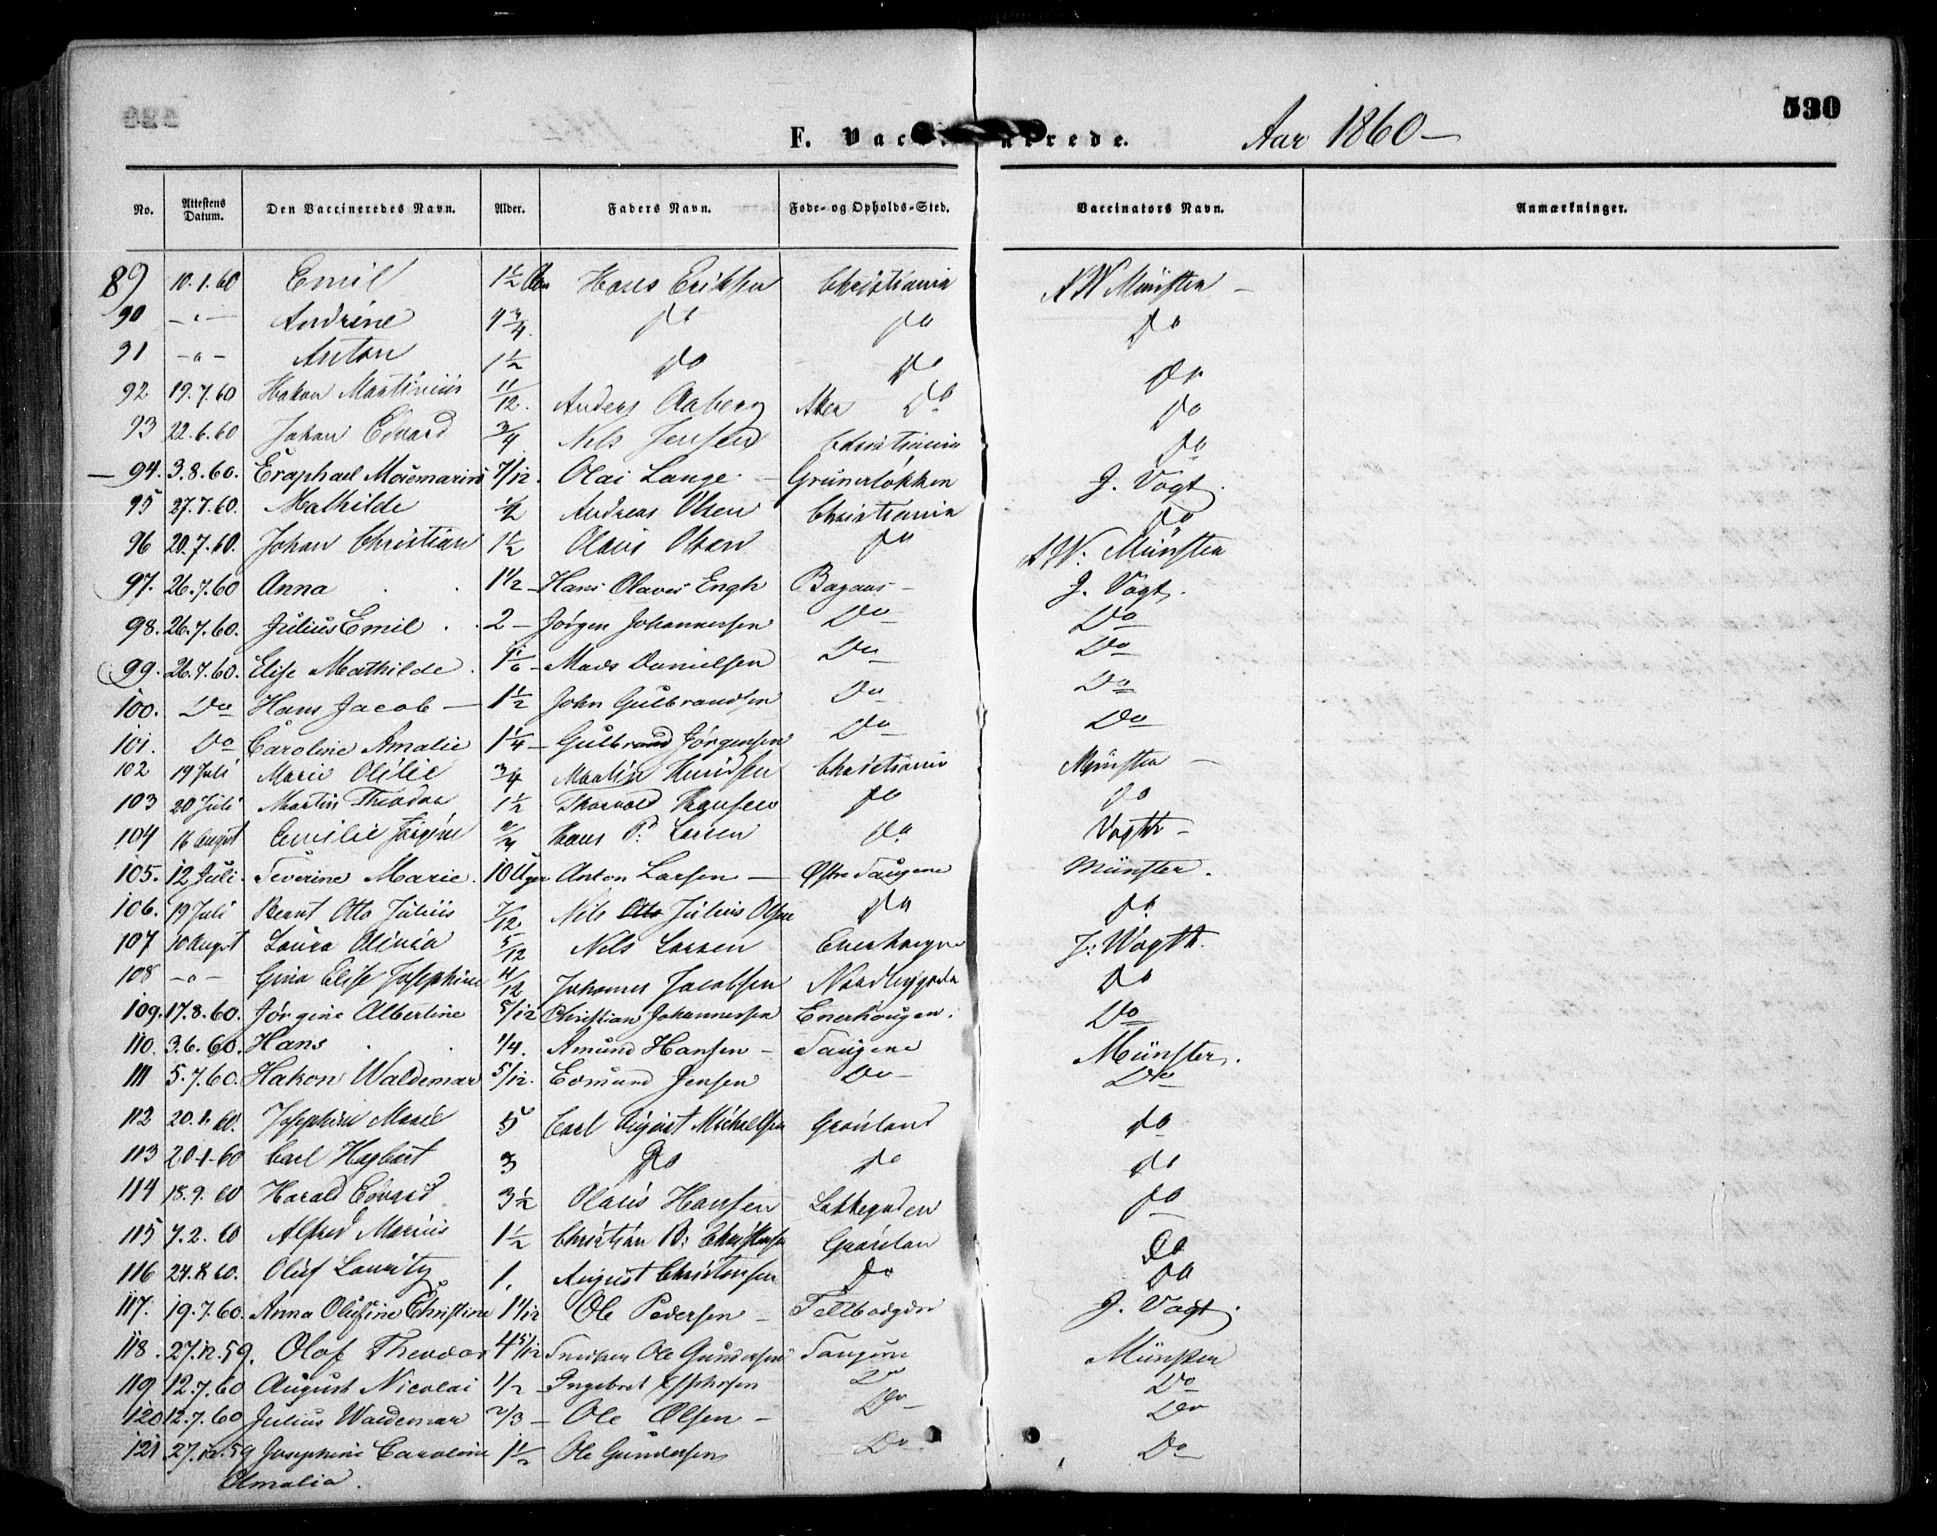 530
F. Vac arrede. Aar 1860 —
No. Attestens Datum. Den Vaccineredes Navn. Alder. Faders Navn. Føde- og Opholds-Sted. Vaccinators Navn. Anmærkninger.
89 10.1.60 Emil 1 1/2 Hans Eriksen Christiania Münster —
90 — " — Andrine 4 3/4. do do do
91 — " — Anton 1 1/2 do do do
92 19.7.60 Hakon Martinius 11/12. Anders Aaberg Aker do do
93 22.6.60 Johan Edvard 3/4 Nels Jensen Christiania do
94. 3.8.60. Eraphael Moiemarini 7/12. Olai Lange — Grünerløkken J. Vogt.
95 27.7.60. Mathilde 1/2 Andreas Olsen Christiania do
96 20.7.60. Johan Christian 1 1/2 Olaus Olsen do A W. Münster
97. 26.7.60 Anna 1 1/2 — Hans Olaves Engh Bagaas — J. Vogt.
98. 26.7.60. Julius Emil 2 — Jørgen Johannessen Do Do
99. 26.7.60. Elise Mathilde. 1 1/6 — Mads Danielsen Do Do
100. Do Hans Jacob — 1 1/2 John Gulbrandsen Do Do
101. Do Caroline Amalie 1 1/4 — Gulbrand Jørgensen Do Do
102 19 Juli Marie Otilie 3/4 Martin Knudsen Christiania Münster —
103 20 Juli Martin Theodor 1 1/2 Thorvald Hansen do do
104 16 August Emilie Jørgine 3/4 Hans P: Larsen do. Vogth —
105. 12 Juli. Severine Marie. 10 Uger Anton Larsen — Østre Taugene Münster.
106. 19 Juli Bernt Otto Julius 7/12 Nils Otto Julius Olsen do do
107 10 August Laura Olivia 5/12 Nels Larsen Enerhaugen J: Wogth.
108 — " — Gina Elise Josephine 4/12 Johannes Jacobsen Nordbygada Do
109. 17.8.60. Jørgine Albertine 5/12 Christian Johannessen Enerhougen. Do
110. 3.6.60. Hans 1/4. Amund Hansen — Taugene Münster.
111 5.7.60. Hakon Waldemar 5/12. Edmund Jensen Do — Do
112 20.1.60. Josephine Marie 5 Carl Sigvart Michaelsen Grønland do
113 20-1-60 Carl Hagbart 3 Do do do
114 18.9.60 Harald Edvard 3 1/2 Olaus Hansen Lakkegaden do
115 7.2.60 Alfred Marius 1 1/2 Christian B: Christensen Grønlan Do
116 24.8.60. Oluf Lauritz 1. August Christensen Do Do
117. 19.7.60. Anna Olufine Christine 1 1/12 Ole Pedersen — J. Vogt.
118. 27.12.59. Olaf Theodor 4 5/12 Snedker Ole Gundersen Taugene Münster
119 12.7.60 August Nicolai 1/2 — Ingebret Do Do
120 12.7.60 Julius Waldemar 2/3 — Ole Olsen — Do — Do
121 27.12.59 Josephine Caroline 1 1/2 Ole Gundersen Do Do
Amalia.